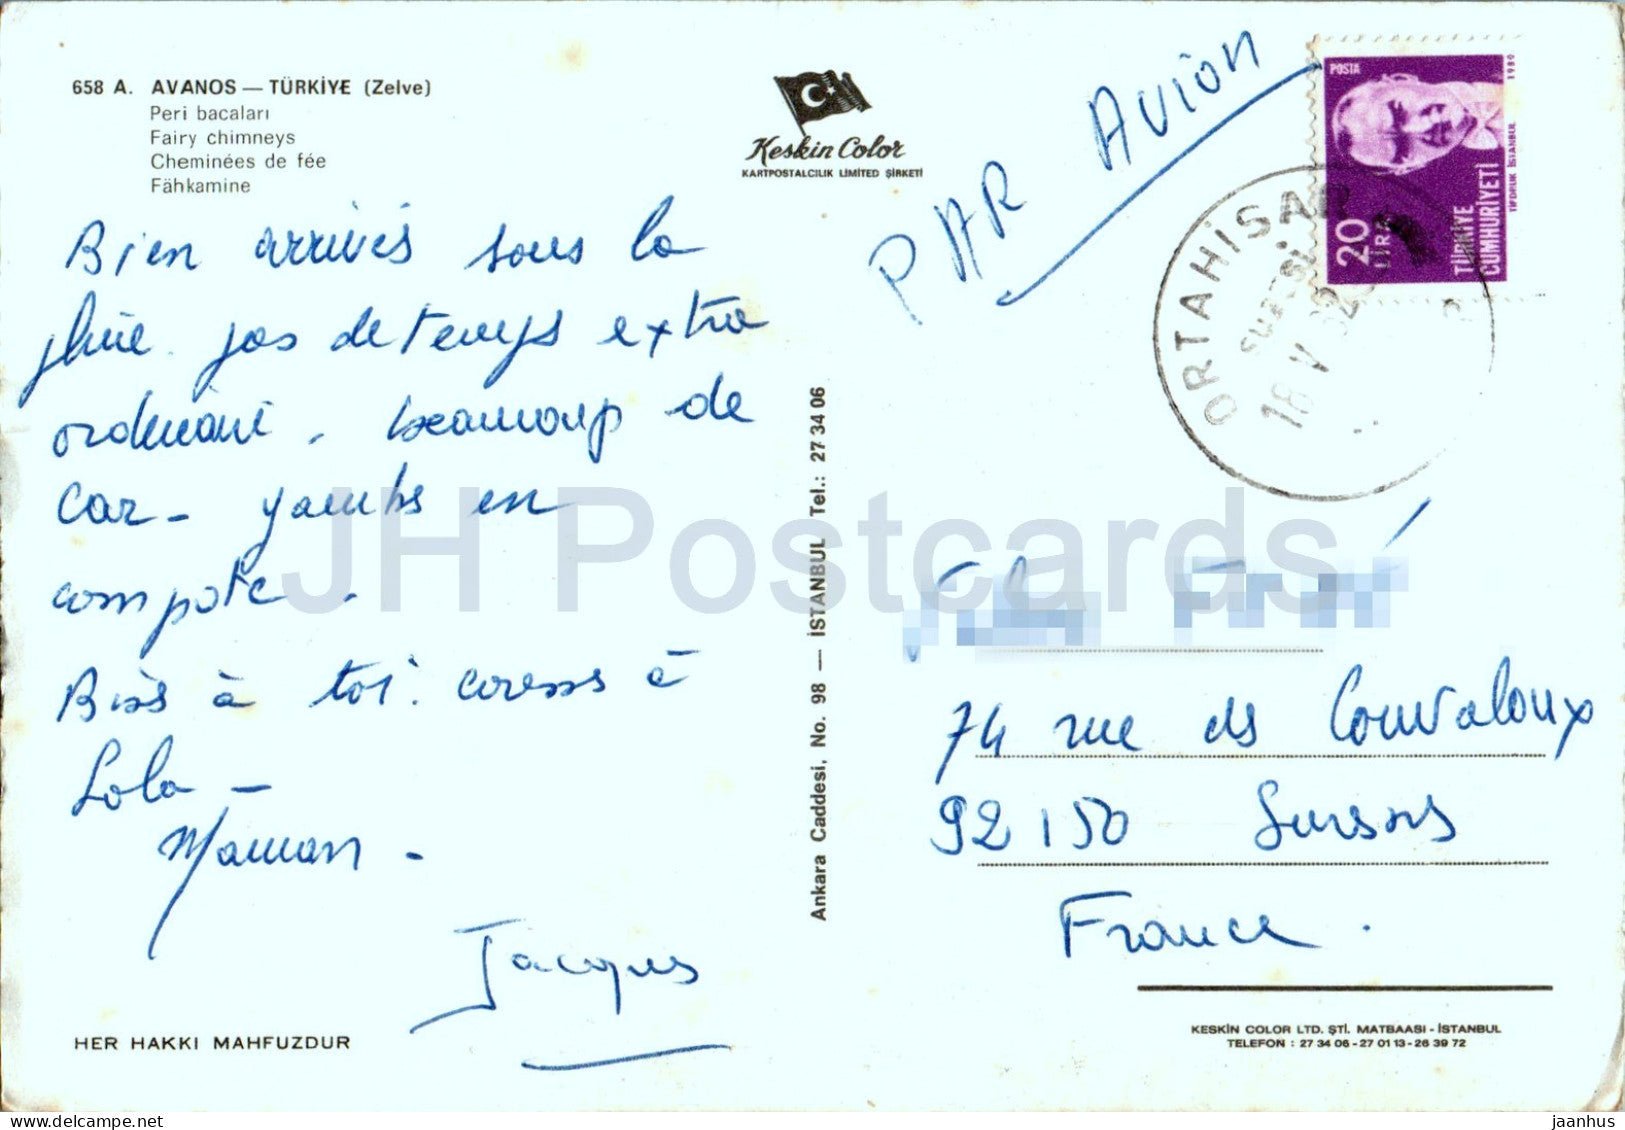 658 A. AVANOS — TÜRKİYE (Zelve)
Peri bacaları
Fairy chimneys
Cheminées de fée
Fähkamine
Keskin Color
KARTPOSTALCILIK LIMITED ŞİRKETİ
PAR AVION
POSTA
1980
20
LİRA
TÜRKİYE
CUMHURİYETİ
TİFDRUK İSTANBUL
ORTAHİSAR
18 V
Bien arrivés sous la
pluie. pas de temps extra
ordinaire. beaucoup de
car - jambes en
compote.
Bises à toi. caresses à
Lola -
Maman -
Jacques
HER HAKKI MAHFUZDUR
Ankara Caddesi, No. 98 — İSTANBUL Tel.: 27 34 06
74 rue des Couvaloux
92150 Suresnes
France.
KESKİN COLOR LTD. ŞTİ. MATBAASI - İSTANBUL
TELEFON : 27 34 06 - 27 01 13 - 26 39 72
JH Postcards
www.delcampe.net
jaanhus